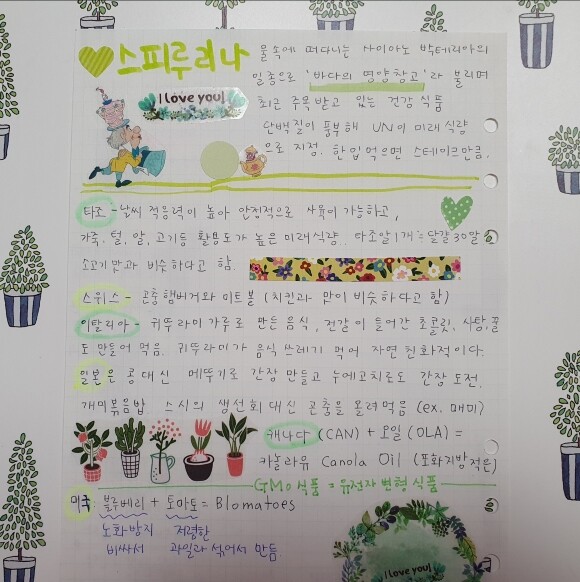 스피루리나
물속에 떠다니는 사이아노 박테리아의
일종으로 '바다의 영양창고'라 불리며
I love you!
최근 주목받고 있는 건강식품
단백질이 풍부해 UN이 미래 식량
으로 지정. 한입먹으면 스테이크만큼.
타조 - 날씨 적응력이 높아 안정적으로 사육이 가능하고,
가죽, 털, 알, 고기등 활용도가 높은 미래식량. 타조알 1개 = 달걀 30알
소고기맛과 비슷하다고 함.
스위스 - 곤충햄버거와 미트볼 (치킨과 맛이 비슷하다고 함)
이탈리아 - 귀뚜라미 가루로 만든 음식, 전갈이 들어간 초콜릿, 사탕, 꿀
도 만들어 먹음. 귀뚜라미가 음식 쓰레기 먹어 자연 친화적이다.
일본은 콩 대신 메뚜기로 간장 만들고 누에고치로도 간장 도전.
개미볶음밥 스시의 생선회 대신 곤충을 올려먹음 (ex. 매미)
캐나다 (CAN) + 오일 (OLA) =
카놀라유 Canola Oil (포화지방적은)
GMO식품 = 유전자 변형 식품
미국: 블루베리 + 토마토 = Blomatoes
노화방지 저렴한
비싸서 과일과 섞어서 만듦.
I love you!